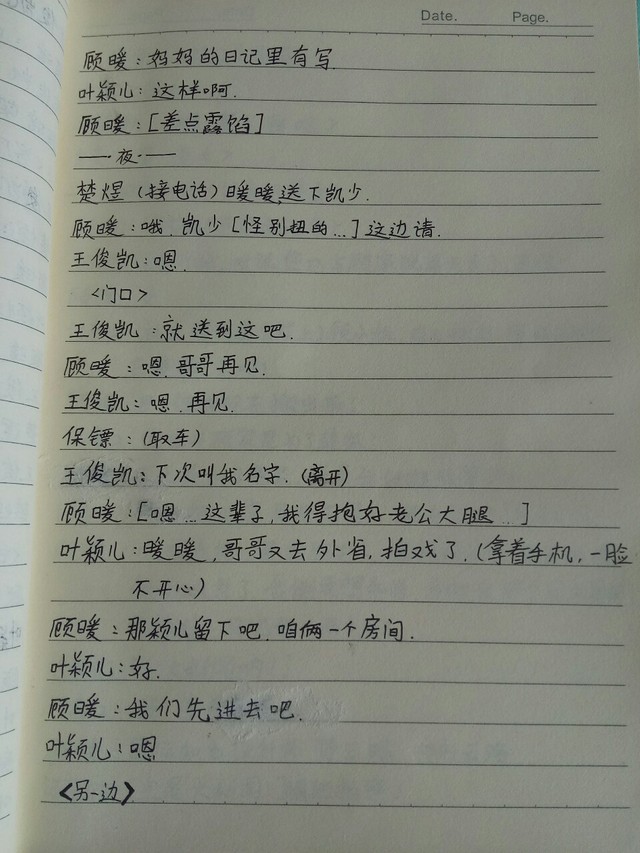 Date.    Page.
顾暖：妈妈的日记里有写.
叶颖儿：这样啊.
顾暖：[差点露馅]
——夜·——
楚煜（接电话）暖暖,送下凯少.
顾暖：哦.凯少[怪别扭的...]这边请.
王俊凯：嗯.
<门口>
王俊凯：就送到这吧.
顾暖：嗯.哥哥再见.
王俊凯：嗯.再见.
保镖：（取车）
王俊凯：下次叫我名字.（离开）
顾暖：[嗯...这辈子,我得抱好老公大腿...]
叶颖儿：暖暖,哥哥又去外省,拍戏了.（拿着手机,一脸
不开心）
顾暖：那颖儿留下吧.咱俩一个房间.
叶颖儿：好.
顾暖：我们先进去吧.
叶颖儿：嗯
<另一边>